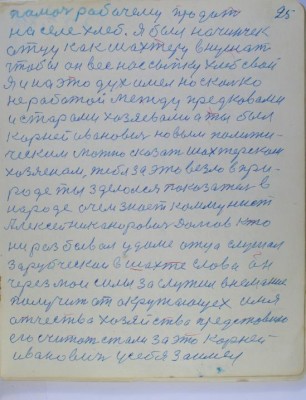 помог рабочему продать 25
на селе хлеб. Я был начинчек
отцу как шахтеру внушат
чтобы он весно свойку хлеб свой
Я и на это дух имел но сколко
не работой между предковами
и старами хозяевами а ты был
Корней иванович новым полити-
ческим можно сказат шахтерском
хозяенам, тебя за это везло в при-
роде ты зделолся показател в
народе о чем знает коммунист
Алексей никонорович Домов кто
ни розбывал удоме отца слушал
Зарубческой в шахте слова он
через мои силы заслужил внемание
получит от окружающех имя
отчества хозяйства представлено
его считат стали за это Корней
иванович усебя заимел